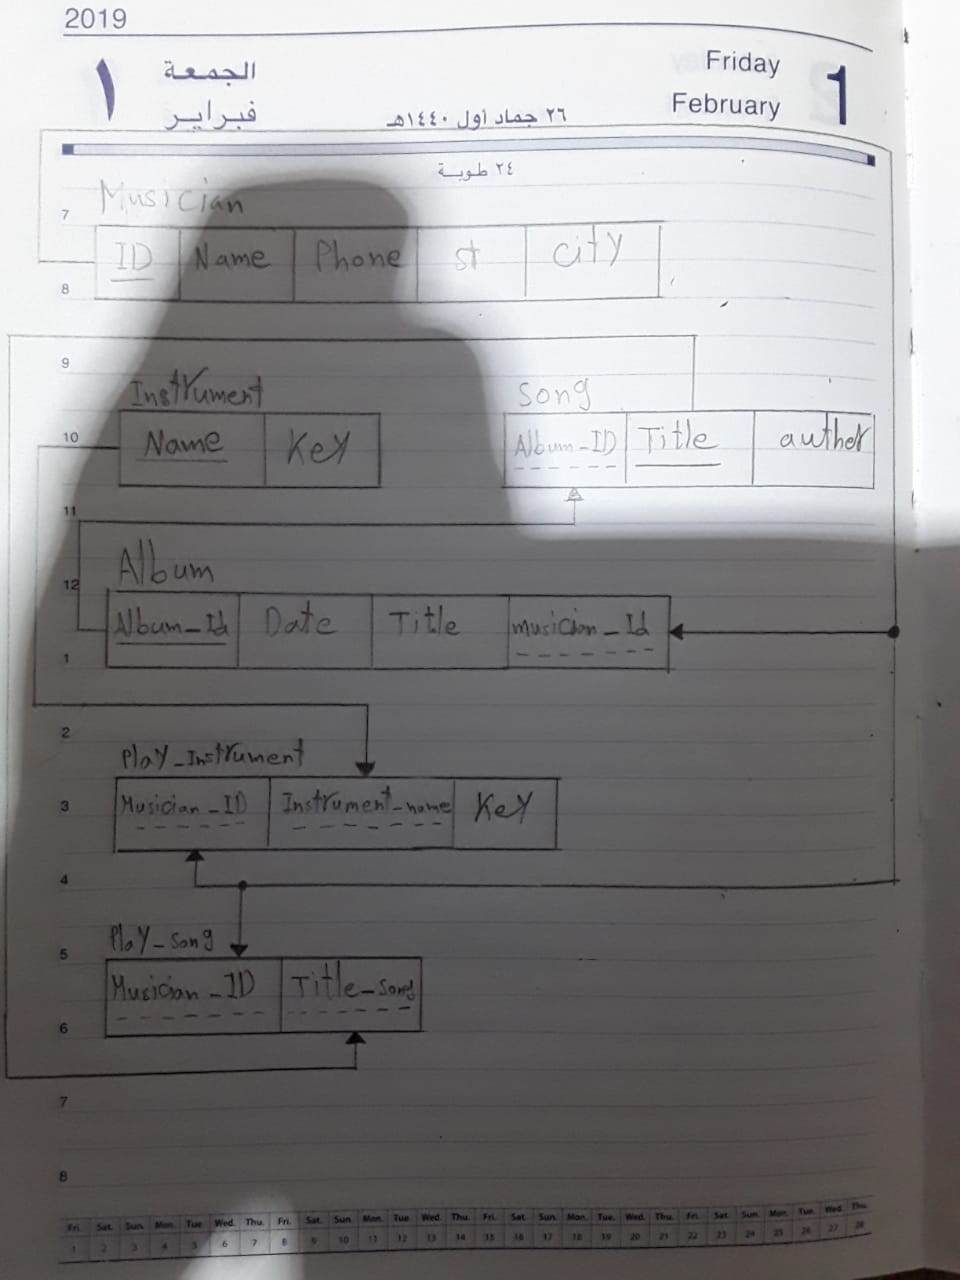 2019
الجمعة
فبراير
١
٢٦ جماد أول ١٤٤٠هـ
Friday
February
1
٢٤ طوبة
7
Musician
ID Name Phone st city
8
9
Instrument
Song
10
Name Key
Album_ID Title auther
11
Album
12
Album_Id Date Title musician_Id
1
2
Play_Instrument
3
Musician_ID Instrument_name Key
4
Play_song
5
Musician_ID Title_song
6
7
8
Fri. Sat. Sun. Mon. Tue. Wed. Thu. Fri. Sat. Sun. Mon. Tue. Wed. Thu. Fri. Sat. Sun. Mon. Tue. Wed. Thu. Fri. Sat. Sun. Mon. Tue. Wed. Thu.
1 2 3 4 5 6 7 8 9 10 11 12 13 14 15 16 17 18 19 20 21 22 23 24 25 26 27 28